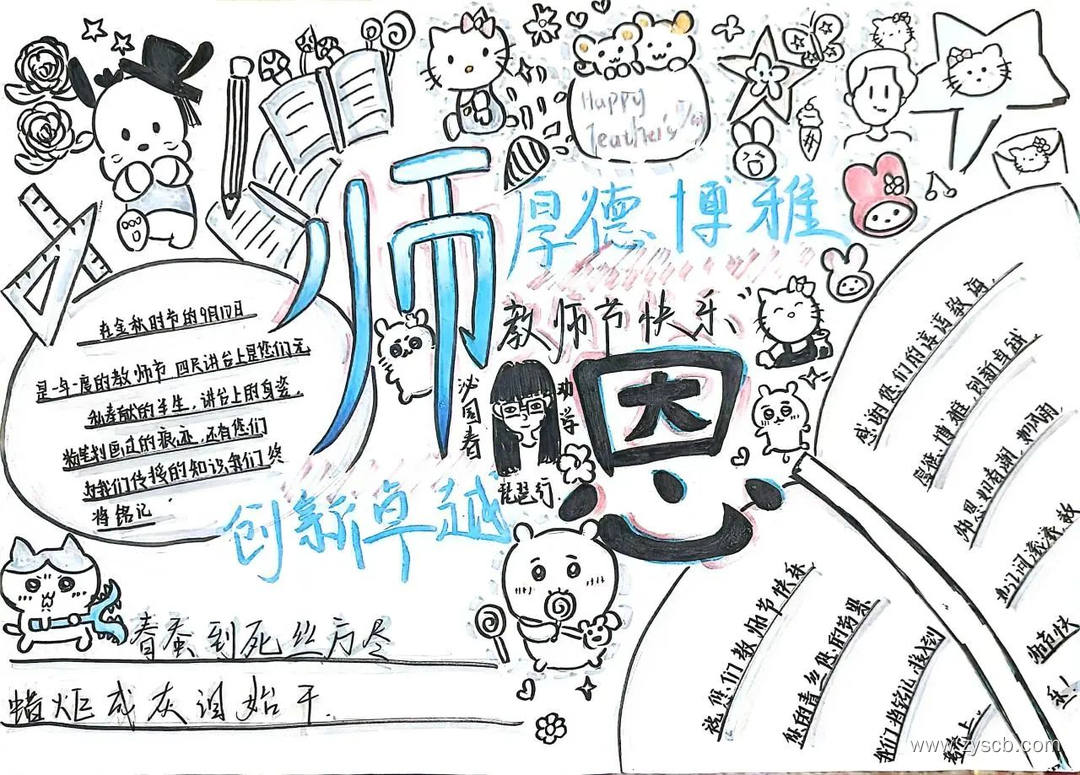 Happy
Teacher's
师
厚德博雅
教师节快乐
恩
沁园春
劝学
琵琶行
创新卓越
在金秋时节的9月10日
是一年一度的教师节 四尺讲台上是您们无
私奉献的半生，讲台上的身姿，
粉笔划过的痕迹，还有您们
为我们传授的知识，我们终
将铭记
春蚕到死丝方尽
蜡炬成灰泪始干.
感谢您们的谆谆教诲，
厚德博雅，创新卓越
师恩如春潮
祝您们教师节快乐
您的青丝
我们将铭记
www.zyscb.com